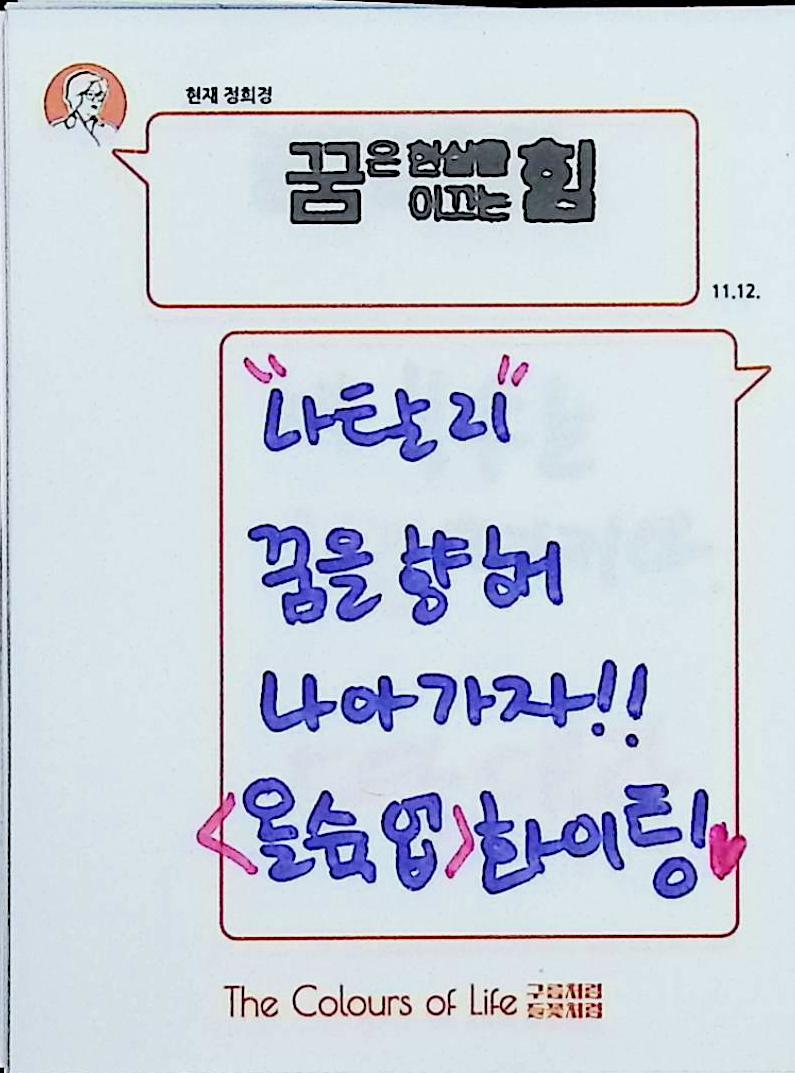 현재 정희경
꿈은 현실을
이끄는 힘
11.12.
"나탈리"
꿈을 향해
나아가자!!
<올습업>화이팅♥
The Colours of Life 구름처럼
들꽃처럼